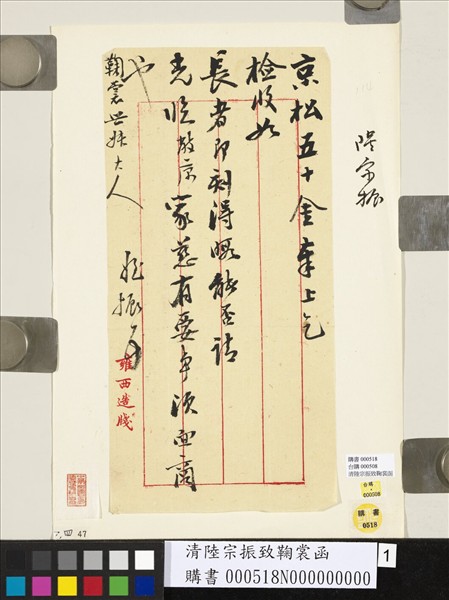 京松五十金奉上乞
檢收如
長者即刻得暇能否請
光臨敝京家慈有要事須面商
也
鞠裳世妹大人
振
雍西造牋
陸宗振
購書 000518
台購 000508
清陸宗振致鞠裳函
台購
000508
購書
0518
六.四. 47
清陸宗振致鞠裳函
購書 000518N000000000
1